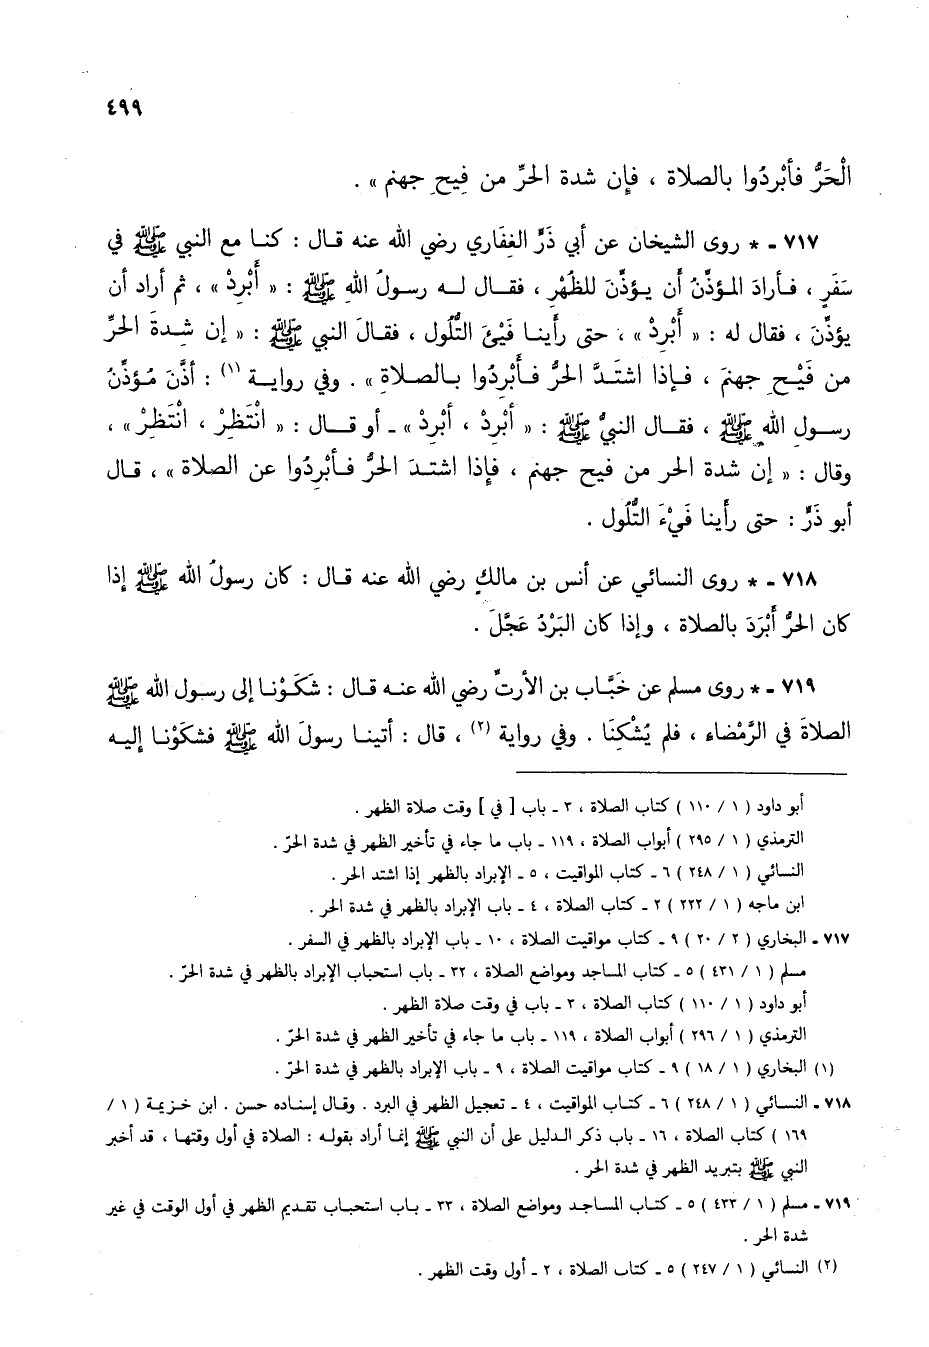 ٤٩٩
الْحَرُّ فأبْردُوا بالصلاة ، فإن شدة الحرِّ من فيحِ جهنم » .
٧١٧ - * روى الشيخان عن أبي ذَرٍّ الغِفَاري رضي الله عنه قال : كنا مع النبي ﷺ في
سَفَرٍ ، فأرادَ المؤذِّنُ أن يؤذِّنَ للظُهْرِ ، فقال له رسولُ اللهِ ﷺ : « أَبْرِدْ » ، ثم أراد أن
يؤذِّنَ ، فقال له : « أَبْرِدْ » ، حتى رأينا فَيْئَ التُّلُول ، فقالَ النبي ﷺ : « إن شدةَ الحرِّ
من فَيْحِ جهنمَ ، فإذا اشتَدَّ الحرُّ فأَبْرِدُوا بالصلاةِ » . وفي رواية (١) : أذَّنَ مُؤذِّنُ
رسول اللهِ ﷺ ، فقال النبيُّ ﷺ : « أَبْرِدْ ، أبْرِدْ » - أو قال : « انْتَظِرْ ، انْتَظِرْ » ،
وقال : « إن شدة الحر من فيح جهنم ، فإذا اشتدَ الحرُّ فأبْرِدُوا عن الصلاة » ، قال
أبو ذَرٍّ : حتى رأينا فَيْءَ التُّلُول .
٧١٨ - * روى النسائي عن أنس بن مالكٍ رضي الله عنه قال : كان رسولُ الله ﷺ إذا
كان الحرُّ أَبْرَدَ بالصلاة ، وإذا كان البَرْدُ عَجَّلَ .
٧١٩ - * روى مسلم عن خَبَّاب بن الأرتِّ رضي الله عنه قال : شَكَوْنا إلى رسول الله ﷺ
الصلاةَ في الرَّمْضاء ، فلم يُشْكِنَا . وفي رواية (٢) ، قال : أتينا رسولَ الله ﷺ فشكَوْنا إليه
أبو داود ( ١ / ١١٠ ) كتاب الصلاة ، ٣ - باب [ في ] وقت صلاة الظهر .
الترمذي ( ١ / ٢٩٥ ) أبواب الصلاة ، ١١٩ - باب ما جاء في تأخير الظهر في شدة الحرّ .
النسائي ( ١ / ٢٤٨ ) ٦ - كتاب المواقيت ، ٥ - الإبراد بالظهر إذا اشتد الحر .
ابن ماجه ( ١ / ٢٢٢ ) ٢ - كتاب الصلاة ، ٤ - باب الإبراد بالظهر في شدة الحر .
٧١٧ - البخاري ( ٢ / ٢٠ ) ٩ - كتاب مواقيت الصلاة ، ١٠ - باب الإبراد بالظهر في السفر .
مسلم ( ١ / ٤٣١ ) ٥ - كتاب المساجد ومواضع الصلاة ، ٣٢ - باب استحباب الإبراد بالظهر في شدة الحرّ .
أبو داود ( ١ / ١١٠ ) كتاب الصلاة ، ٣ - باب في وقت صلاة الظهر .
الترمذي ( ١ / ٢٩٦ ) أبواب الصلاة ، ١١٩ - باب ما جاء في تأخير الظهر في شدة الحرّ .
(١) البخاري ( ١ / ١٨ ) ٩ - كتاب مواقيت الصلاة ، ٩ - باب الإبراد بالظهر في شدة الحرّ .
٧١٨ - النسائي ( ١ / ٢٤٨ ) ٦ - كتاب المواقيت ، ٤ - تعجيل الظهر في البرد . وقال إسناده حسن . ابن خزيمة ( ١ /
١٦٩ ) كتاب الصلاة ، ١٦ - باب ذكر الدليل على أن النبي ﷺ إنما أراد بقوله : الصلاة في أول وقتها ، قد أخبر
النبي ﷺ بتبريد الظهر في شدة الحر .
٧١٩ - مسلم ( ١ / ٤٣٣ ) ٥ - كتاب المساجد ومواضع الصلاة ، ٣٣ - باب استحباب تقديم الظهر في أول الوقت في غير
شدة الحر .
(٢) النسائي ( ١ / ٢٤٧ ) ٥ - كتاب الصلاة ، ٢ - أول وقت الظهر .